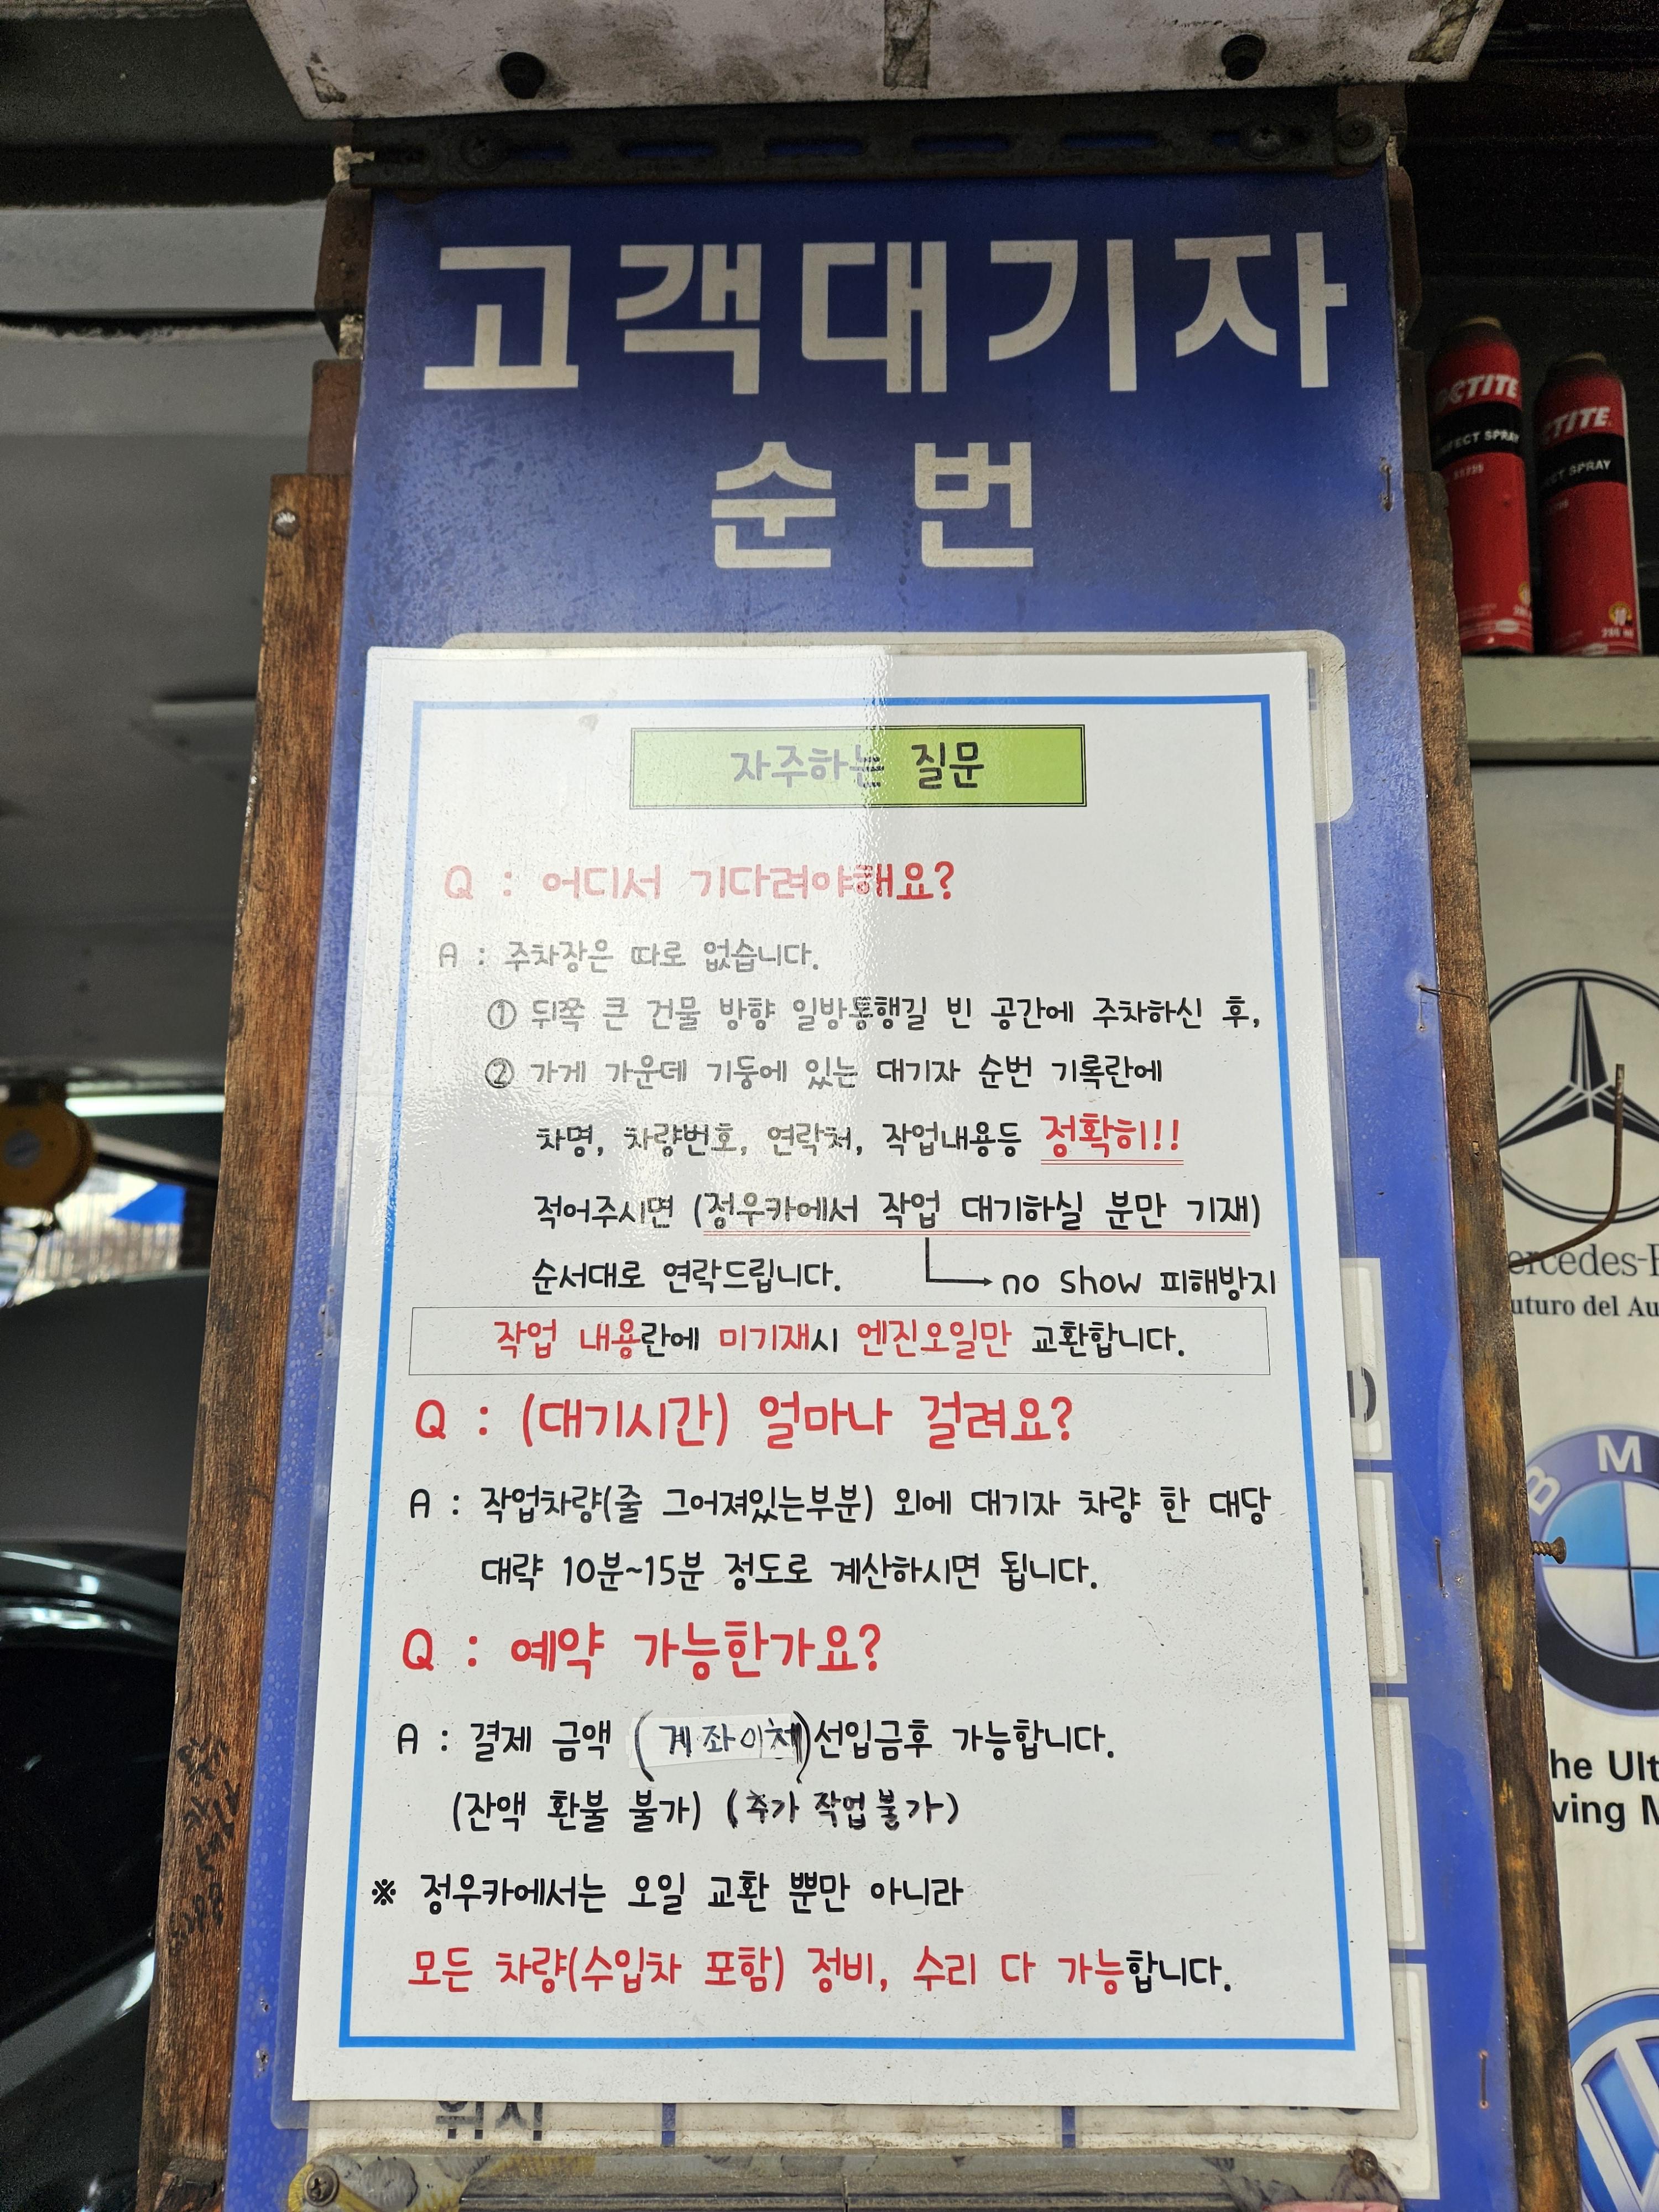 고객대기자
순번
자주하는 질문
Q : 어디서 기다려야해요?
A : 주차장은 따로 없습니다.
① 뒤쪽 큰 건물 방향 일방통행길 빈 공간에 주차하신 후,
② 가게 가운데 기둥에 있는 대기자 순번 기록란에
차명, 차량번호, 연락처, 작업내용등 정확히!!
적어주시면 (정우카에서 작업 대기하실 분만 기재)
순서대로 연락드립니다.
no show 피해방지
작업 내용란에 미기재시 엔진오일만 교환합니다.
Q : (대기시간) 얼마나 걸려요?
A : 작업차량(줄 그어져있는부분) 외에 대기자 차량 한 대당
대략 10분~15분 정도로 계산하시면 됩니다.
Q : 예약 가능한가요?
A : 결제 금액 (계좌이체)선입금후 가능합니다.
(잔액 환불 불가) (추가 작업 불가)
※ 정우카에서는 오일 교환 뿐만 아니라
모든 차량(수입차 포함) 정비, 수리 다 가능합니다.
위치
LOCTITE
CTITE
ECT SPRAY
ercedes-B
uturo del Au
BM
he Ult
ving M